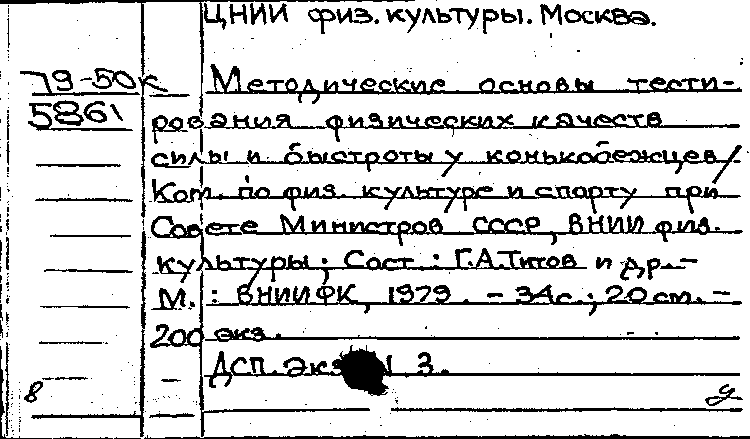 ЦНИИ физ. культуры. Москва.
79-50к Методические основы тести-
5861 рования физических качеств
силы и быстроты у конькобежцев/
Ком. по физ. культуре и спорту при
Совете Министров СССР, ВНИИ физ.
культуры; Сост.: Г.А.Титов и др.-
М.: ВНИИФК, 1979. - 34с.; 20 см. -
200 экз.
ДСП. Экз. N 3.
8